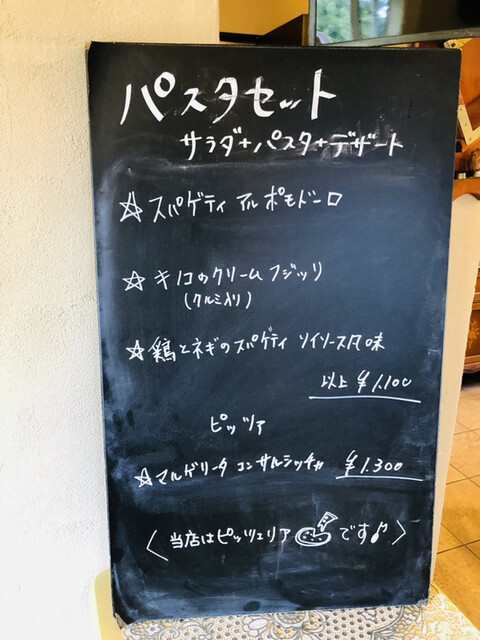 パスタセット
サラダ+パスタ+デザート
☆スパゲティ アル ポモドーロ
☆キノコのクリーム フジッリ
(クルミ入り)
☆鶏とネギのスパゲティ ソイソース風味
以上 ¥1.100
ピッツァ
☆マルゲリータ コンサルシッチャ ¥1.300
〈当店はピッツェリアです♪〉